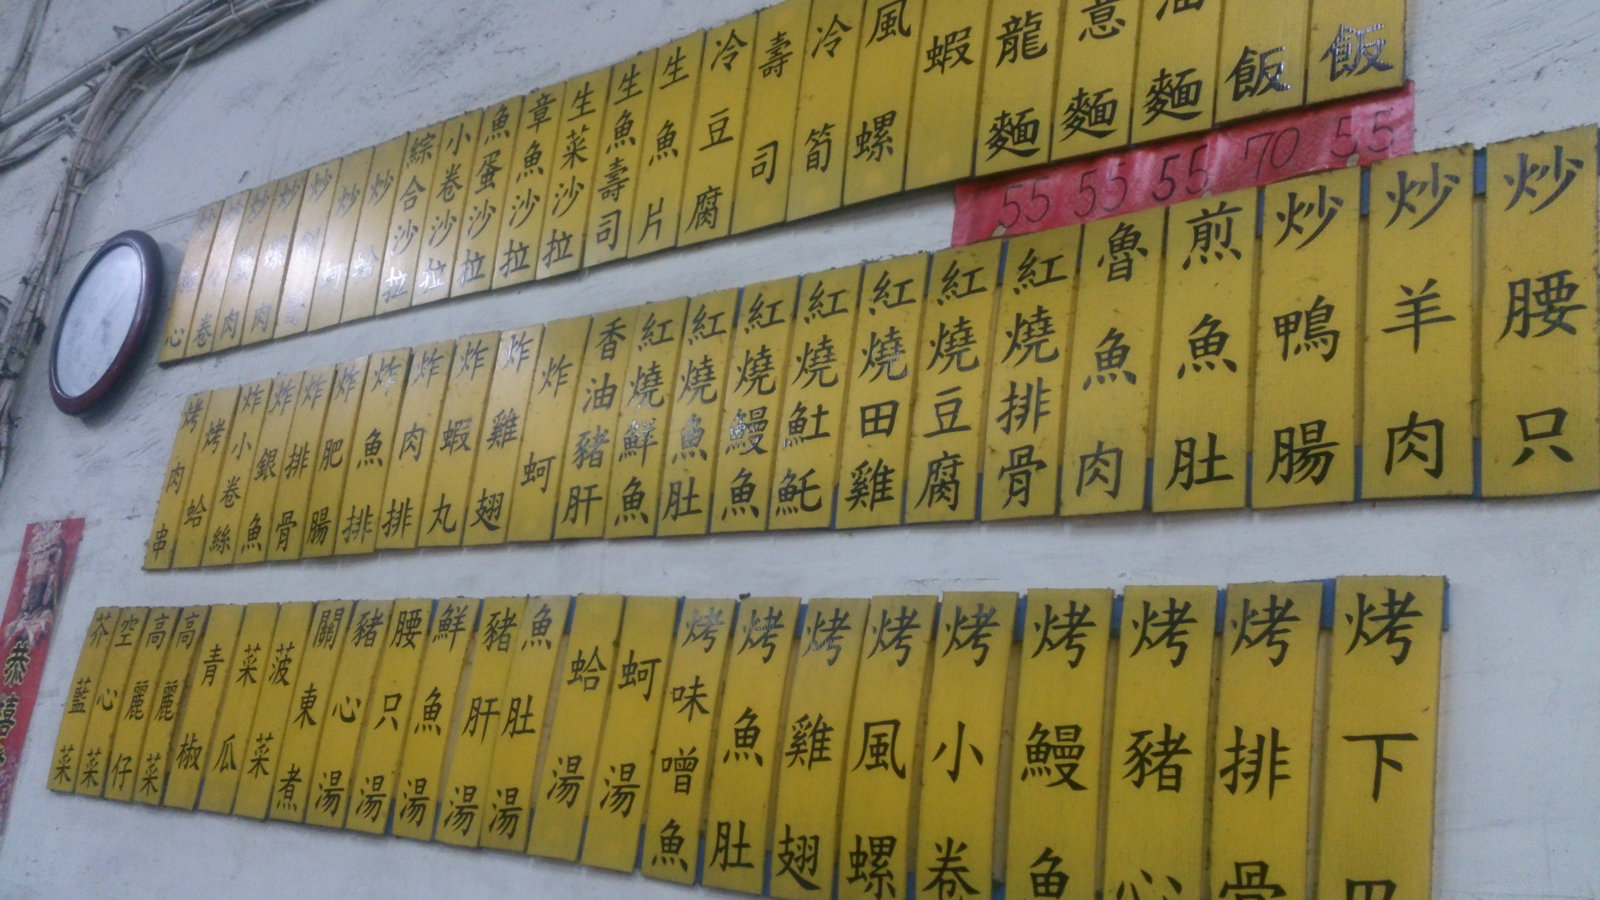 飯
飯
油麵
意麵
龍麵
蝦
風螺
冷筍
壽司
冷豆腐
生魚片
生魚壽司
生菜沙拉
章魚沙拉
魚蛋沙拉
小卷沙拉
綜合沙拉
炒蛤
炒蚵
炒
炒
炒螺肉
肉
卷
心
55 55 55 70 55
炒腰只
炒羊肉
炒鴨腸
煎魚肚
魯魚肉
紅燒排骨
紅燒豆腐
紅燒田雞
紅燒𩵚魠
紅燒鰻魚
紅燒魚肚
紅燒鮮魚
香油豬肝
炸蚵
炸雞翅
炸蝦丸
炸肉排
炸魚排
炸肥腸
炸排骨
炸銀魚
炸小卷絲
烤蛤
烤肉串
烤下巴
烤排骨
烤豬心
烤鰻魚
烤小卷
烤風螺
烤雞翅
烤魚肚
烤味噌魚
蚵湯
蛤湯
魚肚湯
豬肝湯
鮮魚湯
腰只湯
豬心湯
關東煮
菠菜
菜瓜
青椒
高麗菜
高麗仔
空心菜
芥藍菜
恭禧